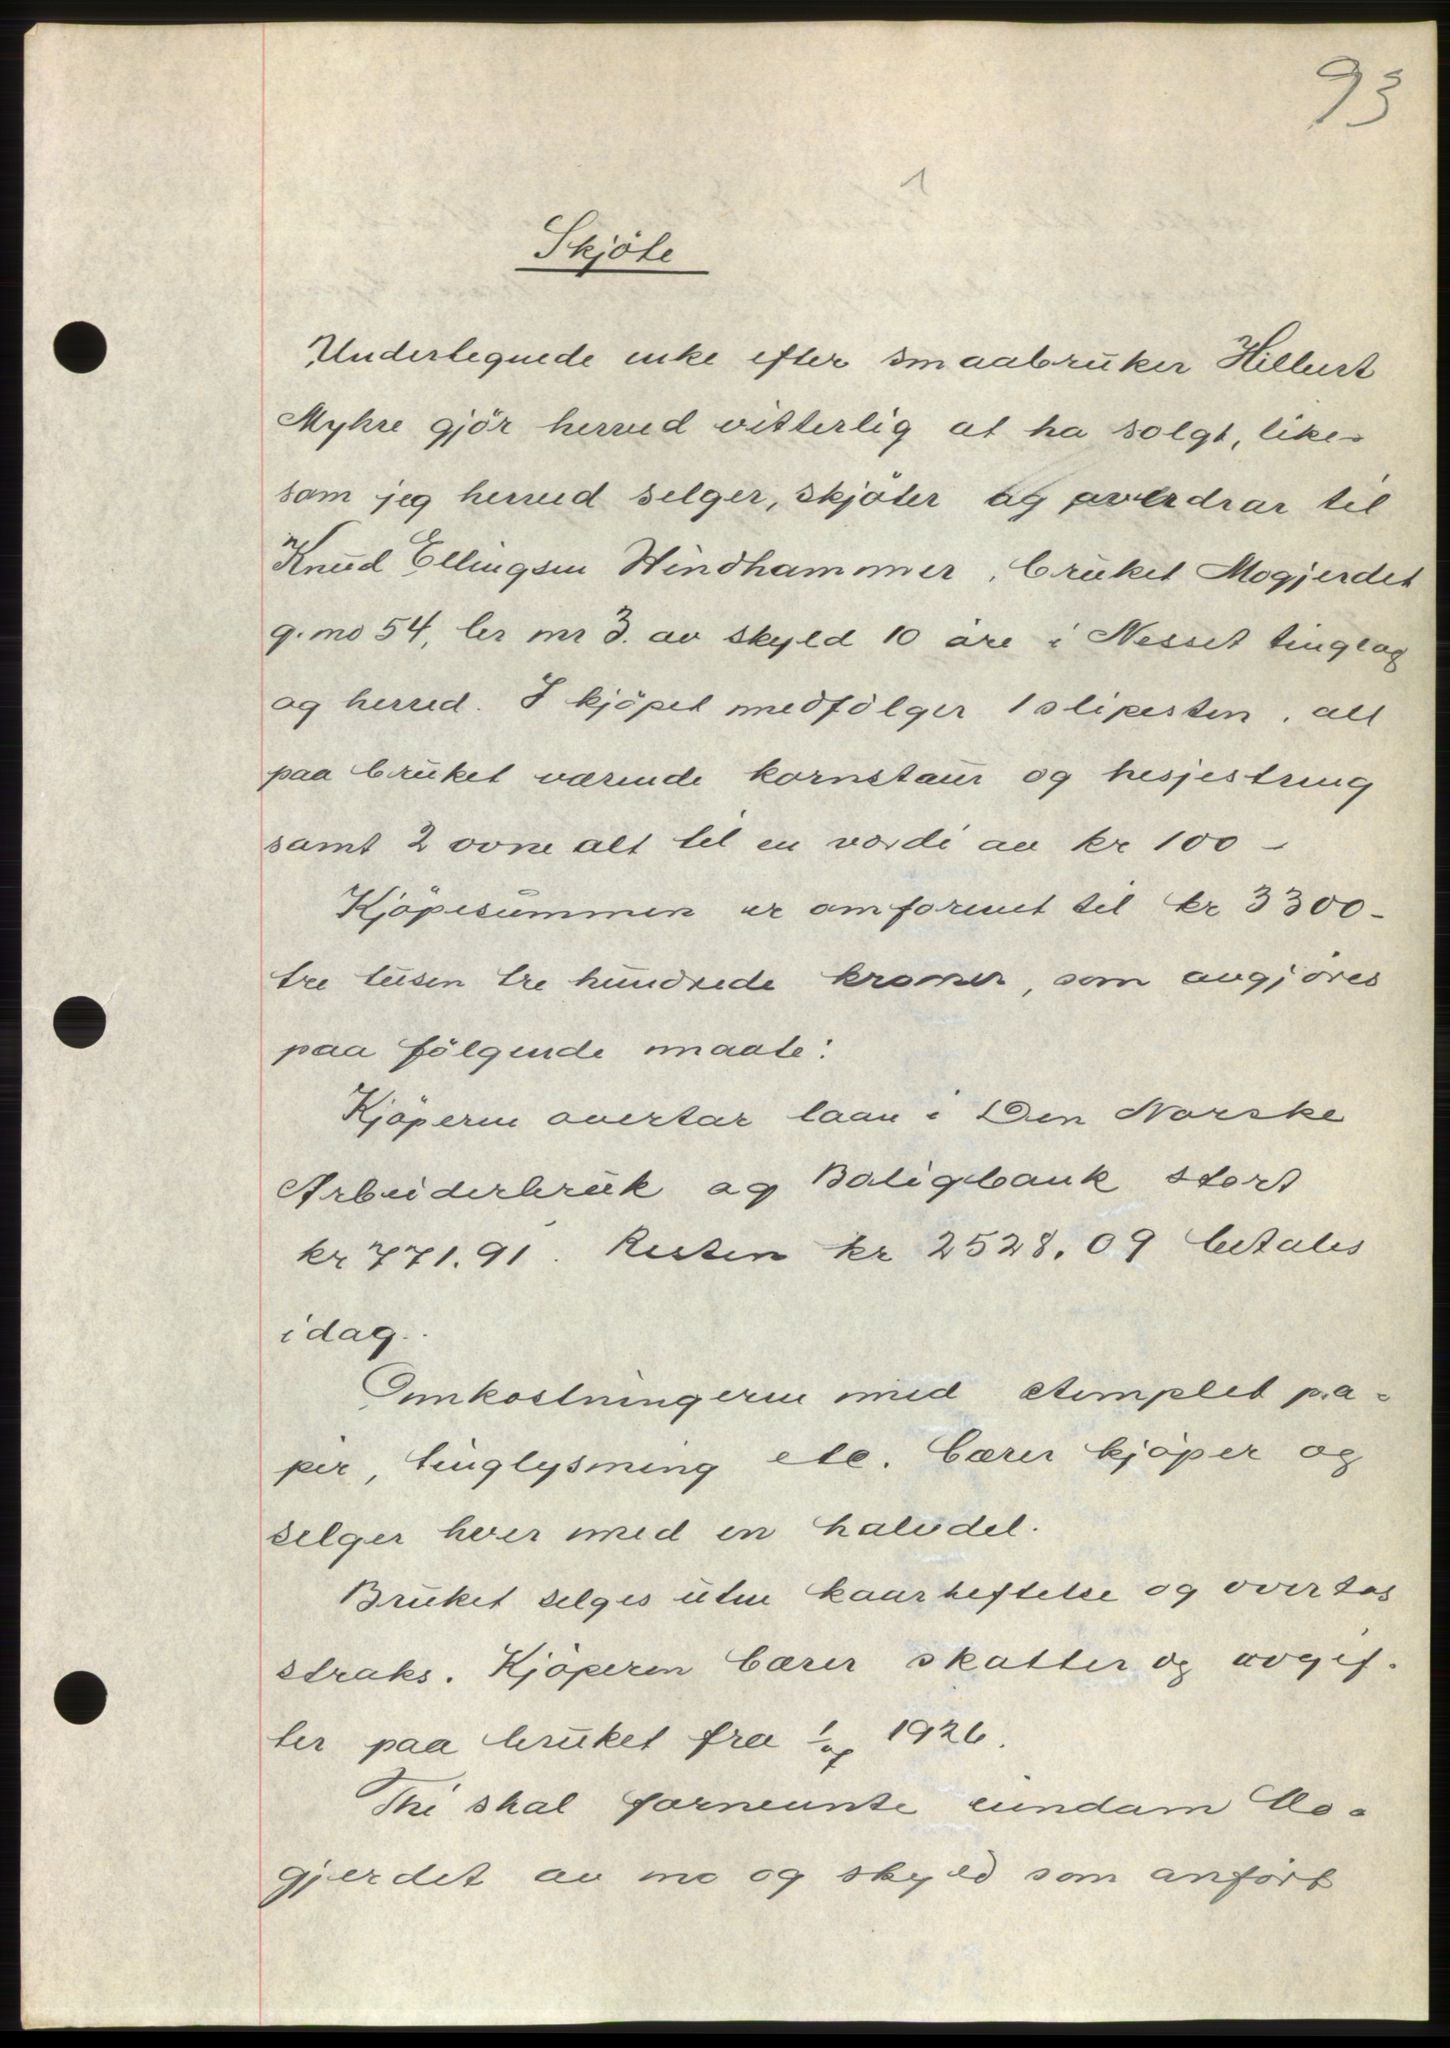 93
1
Skjöte
Undertegnede enke efter smaabruker Hilbert
Myhre gjör herved vitterlig at ha solgt, like-
som jeg herved selger, skjöter og overdrar til
Knud Ellingsen Windhammer, bruket Mogjerdet
g. no 54, br nr 3. av skyld 10 öre i Nesset tinglag
og herred. I kjöpet medfölger 1 slipesten, alt
paa bruket værende kornstaur og hesjestreng
samt 2 ovne alt til en verdi av kr 100 -
Kjöpesummen er omforenet til kr 3300-
tre tusen tre hundrede kroner, som avgjöres
paa fölgende maate:
Kjöperen overtar laan i Den Norske
Arbeiderbruk og Boligbank stort
kr 771.91. Resten kr 2528.09 betales
idag.
Omkostningerne med stemplet pa-
pir, tinglysning etc. bærer kjöper og
selger hver med en halvdel.
Bruket selges uten kaarheftelse og overtas
straks. Kjöperen bærer skatter og avgif-
ter paa bruket fra 1/ 1926.
Thi skal fornevnte eiendom Mo-
gjerdet av no og skyld som anfört